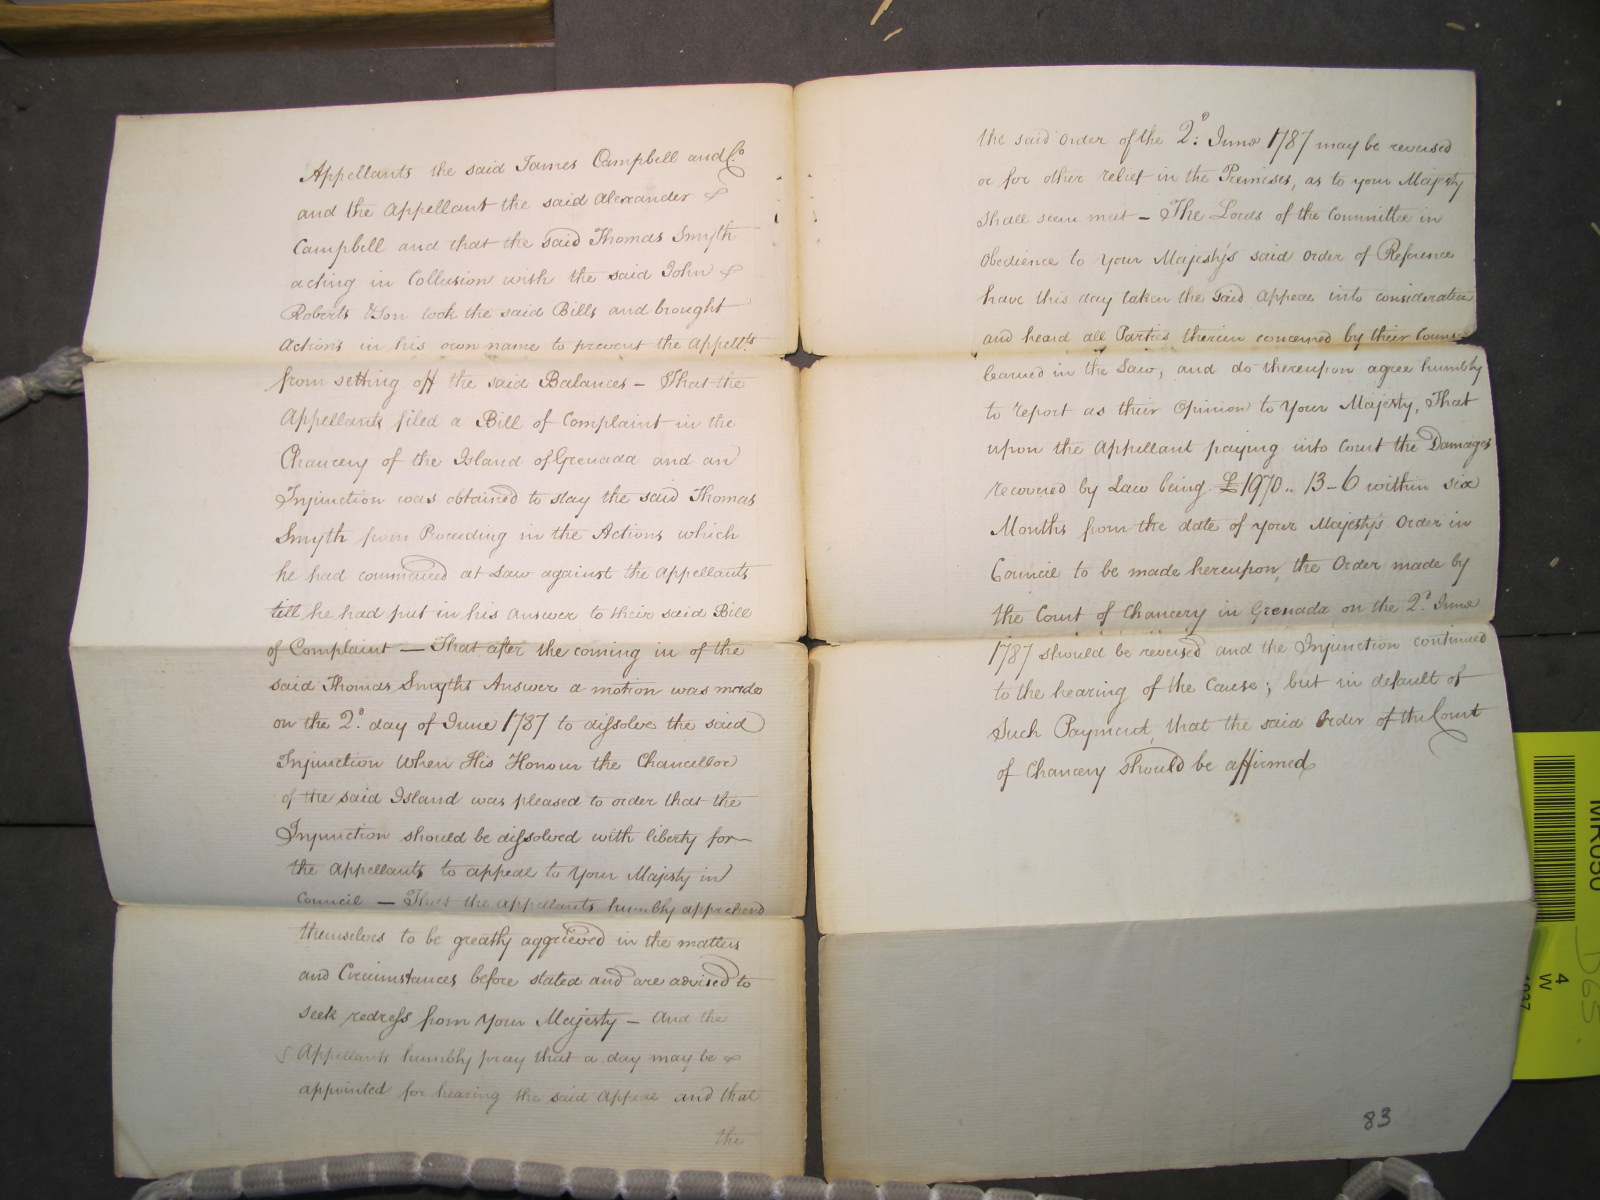 Appellants the said James Campbell and Co
and the Appellant the said Alexander
Campbell and that the said Thomas Smyth
acting in Collusion with the said John
Roberts & Son took the said Bills and brought
Actions in his own name to prevent the Appellts
from setting off the said Balances – That the
Appellants filed a Bill of Complaint in the
Chancery of the Island of Grenada and an
Injunction was obtained to stay the said Thomas
Smyth from Proceeding in the Actions which
he had commenced at Law against the Appellants
till he had put in his Answer to their said Bill
of Complaint — That after the coming in of the
said Thomas Smyths Answer a motion was made
on the 2d. day of June 1787 to dissolve the said
Injunction when His Honour the Chancellor
of the said Island was pleased to order that the
Injunction should be dissolved with liberty for
the Appellants to appeal to Your Majesty in
Council — That the Appellants humbly apprehend
themselves to be greatly aggrieved in the matters
and Circumstances before stated and are advised to
seek redress from Your Majesty – And the
Appellants humbly pray that a day may be
appointed for hearing the said Appeal and that
the
the said Order of the 2d. June 1787 may be reversed
or for other relief in the Premises, as to your Majesty
shall seem meet – The Lords of the Committee in
Obedience to Your Majesty's said Order of Reference
have this day taken the said Appeal into consideration
and heard all Parties therein concerned by their Counsel
learned in the Law, and do thereupon agree humbly
to report as their Opinion to Your Majesty, That
upon the Appellant paying into Court the Damages
recovered by Law being £1970.. 13–6 within six
Months from the date of your Majesty's Order in
Council to be made hereupon, the Order made by
the Court of Chancery in Grenada on the 2d. June
1787 should be reversed and the Injunction continued
to the hearing of the Cause; but in default of
Such Payment, that the said Order of the Court
of Chancery should be affirmed
83
4
W